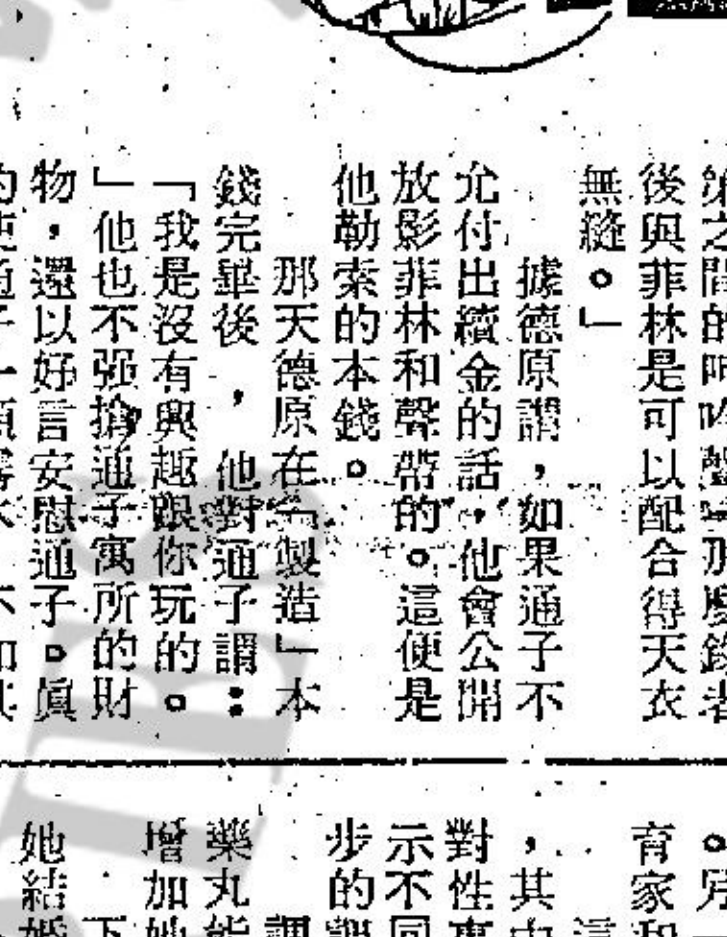 後與菲林是可以配合得天衣
無縫。」
據德原謂，如果通子不
允付出續金的話，他會公開
放影菲林和聲帶的。這便是
他勒索的本錢。
那天德原在「製造」本
錢完畢後，他對通子謂：
「我是沒有興趣跟你玩的。
」他也不强搶通子寓所的財
物，還以好言安慰通子。眞
。
育家和
這
，其中
對性事
示不同
步的
調
藥丸能
增加她
下
她結婚